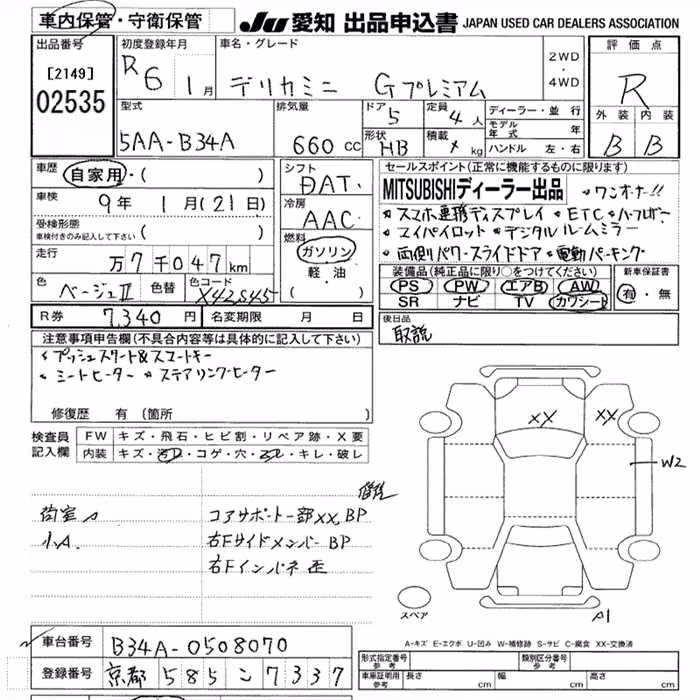 車内保管・守衛保管 JU 愛知 出品申込書 JAPAN USED CAR DEALERS ASSOCIATION
出品番号 初度登録年月 車名・グレード 評価点
[2149] R6 1月 デリカミニ Gプレミアム 2WD・4WD R
02535
型式 排気量 ドア 5 定員 4人 ディーラー・並行 外装 内装
5AA-B34A 660cc 形状 HB 積載 kg モデル年式 年 B B
ハンドル 左・右
車歴 自家用・( ) シフト セールスポイント(正常に機能するものに限ります)
DAT MITSUBISHIディーラー出品 ワンオーナー!!
車検 9年 1月(21日) 冷房 スマホ連携ディスプレイ ETC ハーフレザー
受検形態 AAC マイパイロット デジタルルームミラー
車検付きのみ記入して下さい ( ) 燃料
走行 万7千047km ガソリン・軽油 ( ) 両側パワースライドドア 電動パーキング
装備品(純正品に限り○をつけてください) 新車保証書
色 ベージュII 色替 色コード X42S45 PS PW エアB AW 有・無
SR ナビ TV カワシート
R券 7,340円 名変期限 月 日 後日品
取説
注意事項申告欄(不具合内容等は具体的に記入して下さい)
プッシュスタート&スマートキー
シートヒーター ステアリングヒーター
修復歴 有 (箇所
検査員記入欄 FW キズ・飛石・ヒビ割・リペア跡・X要
内装 キズ・汚れ・コゲ・穴・スレ・キレ・破レ
XX XX
W2
修復
コアサポート一部XX,BP
小A 右FサイドメンバーBP
右Fインパネ歪
スペア A1
A-キズ E-エクボ U-凹み W-補修跡 S-サビ C-腐食 XX-交換済
車台番号 B34A-0508070
登録番号 京都 585 こ 7337
形式指定番号 参考 類別区分番号 参考
車庫証明用 参考 長さ cm 幅 cm 高さ cm